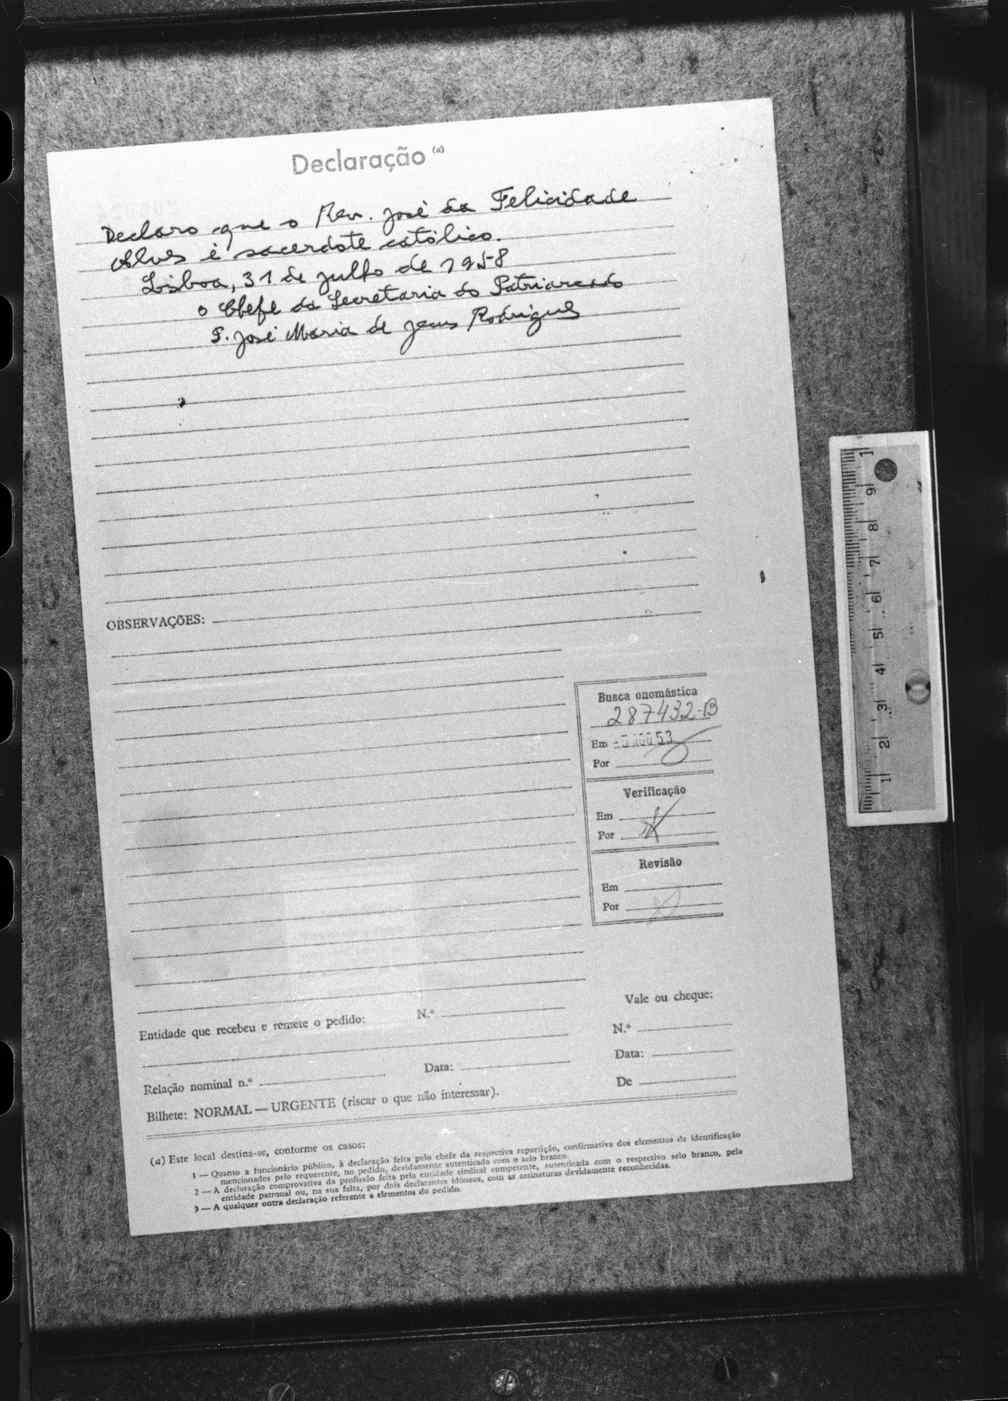 Declaração (a)
Declaro que o Rev. José da Felicidade
Alves é sacerdote católico.
Lisboa, 31 de julho de 1958
o Chefe da Secretaria do Patriarcado
P. José Maria de Jesus Rodrigues
OBSERVAÇÕES:
Busca onomástica
287432-B
Em
Por
Verificação
Em
Por
Revisão
Em
Por
Entidade que recebeu e remete o pedido:
N.º
Vale ou cheque:
N.º
Relação nominal n.º
Data:
Data:
De
Bilhete: NORMAL — URGENTE (riscar o que não interessar).
(a) Este local destina-se, conforme os casos:
1 — Quanto a funcionário público, à declaração feita pelo chefe da respectiva repartição, confirmativa dos elementos de identificação
mencionados pelo requerente, no pedido, devidamente autenticado com o selo branco.
2 — A declaração comprovativa da profissão feita pela entidade sindical competente, autenticada com o respectivo selo branco, pela
entidade patronal ou, na sua falta, por dois declarantes idóneos, com as assinaturas devidamente reconhecidas.
3 — A qualquer outra declaração referente a elementos do pedido.
1 2 3 4 5 6 7 8 9 1